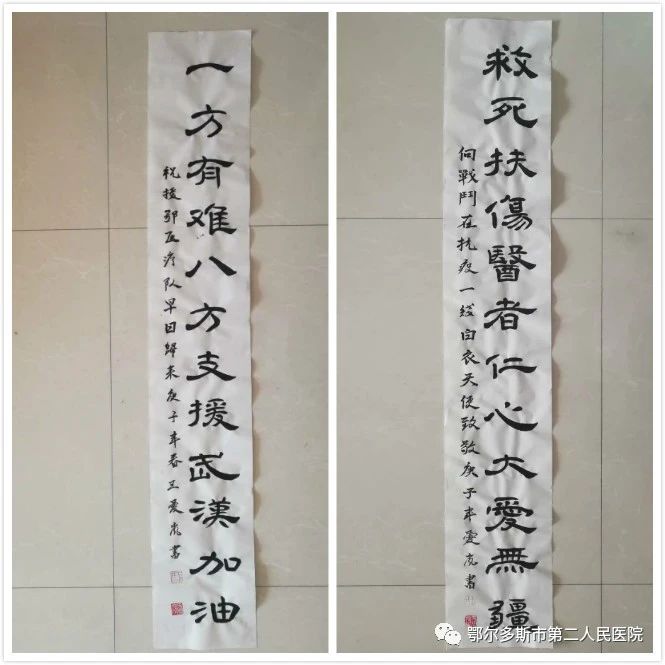 一方有难八方支援武漢加油
祝援鄂医疗队早日歸来庚子年春王爱書
救死扶傷醫者仁心大愛無疆
向戰鬥在抗疫一线白衣天使致敬庚子年愛書
鄂尔多斯市第二人民医院